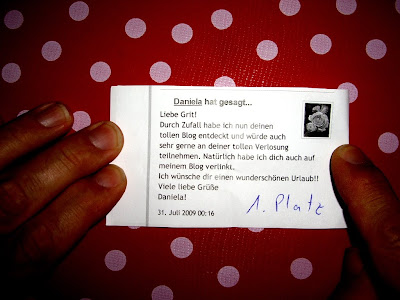 Daniela hat gesagt...
Liebe Grit!
Durch Zufall habe ich nun deinen
tollen Blog entdeckt und würde auch
sehr gerne an deiner tollen Verlosung
teilnehmen. Natürlich habe ich dich auch auf
meinem Blog verlinkt.
Ich wünsche dir einen wunderschönen Urlaub!!
Viele liebe Grüße
Daniela!
1. Platz
31. Juli 2009 00:16